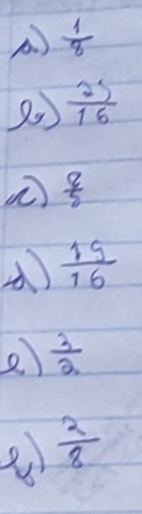 a) 1/8
b) 25/16
c) 8/8
d) 15/16
e) 2/2
f) 2/8